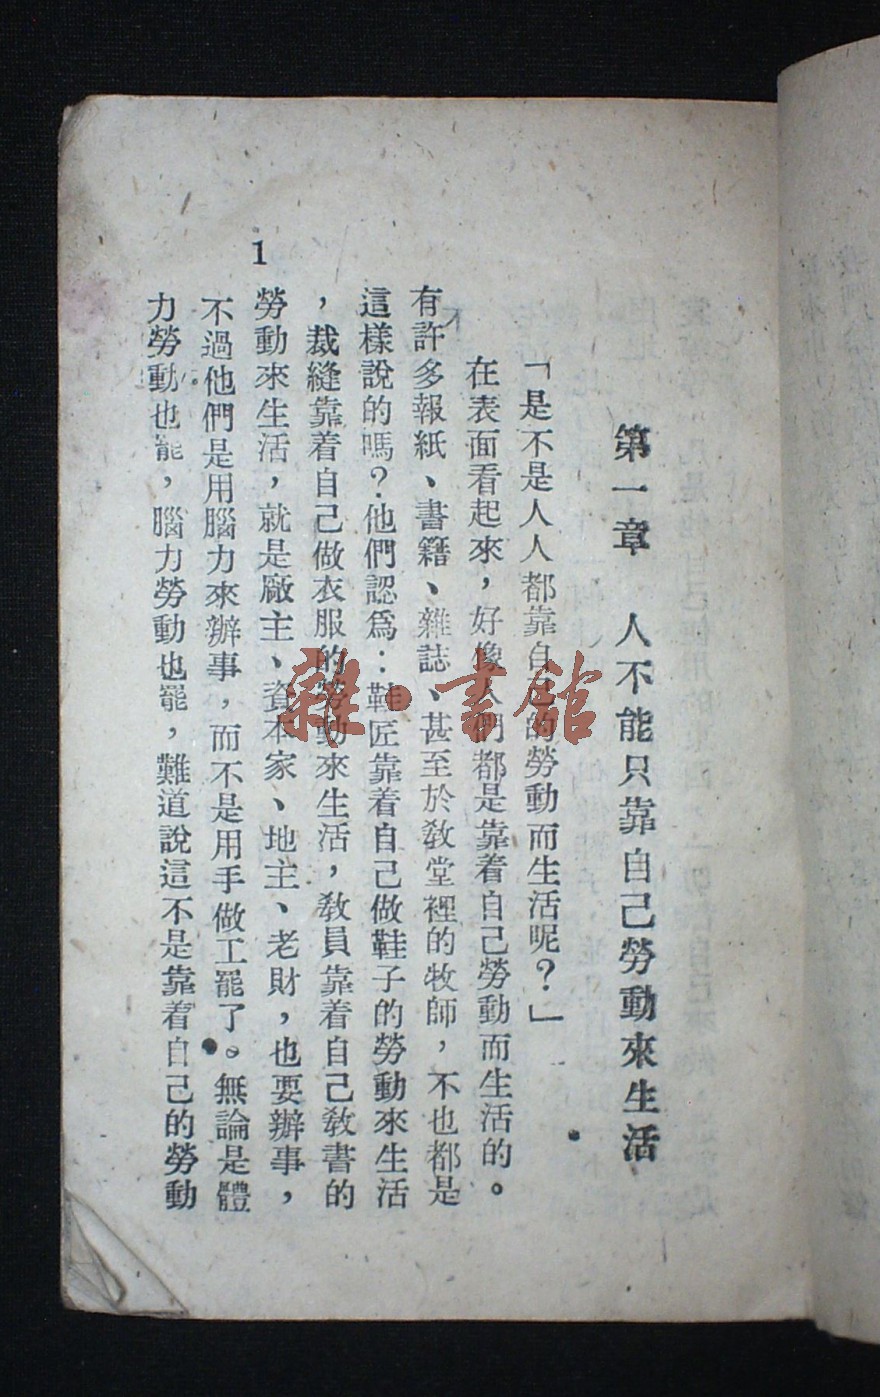 第一章　人不能只靠自己勞動來生活
「是不是人人都靠自己的勞動而生活呢？」
在表面看起來，好像人們都是靠着自己勞動而生活的。
有許多報紙、書籍、雜誌、甚至於教堂裡的牧師，不也都是
這樣說的嗎？他們認爲：鞋匠靠着自己做鞋子的勞動來生活
，裁縫靠着自己做衣服的勞動來生活，教員靠着自己教書的
勞動來生活，就是廠主、資本家、地主、老財，也要辦事，
不過他們是用腦力來辦事，而不是用手做工罷了。無論是體
力勞動也罷，腦力勞動也罷，難道說這不是靠着自己的勞動
1
雜·書館